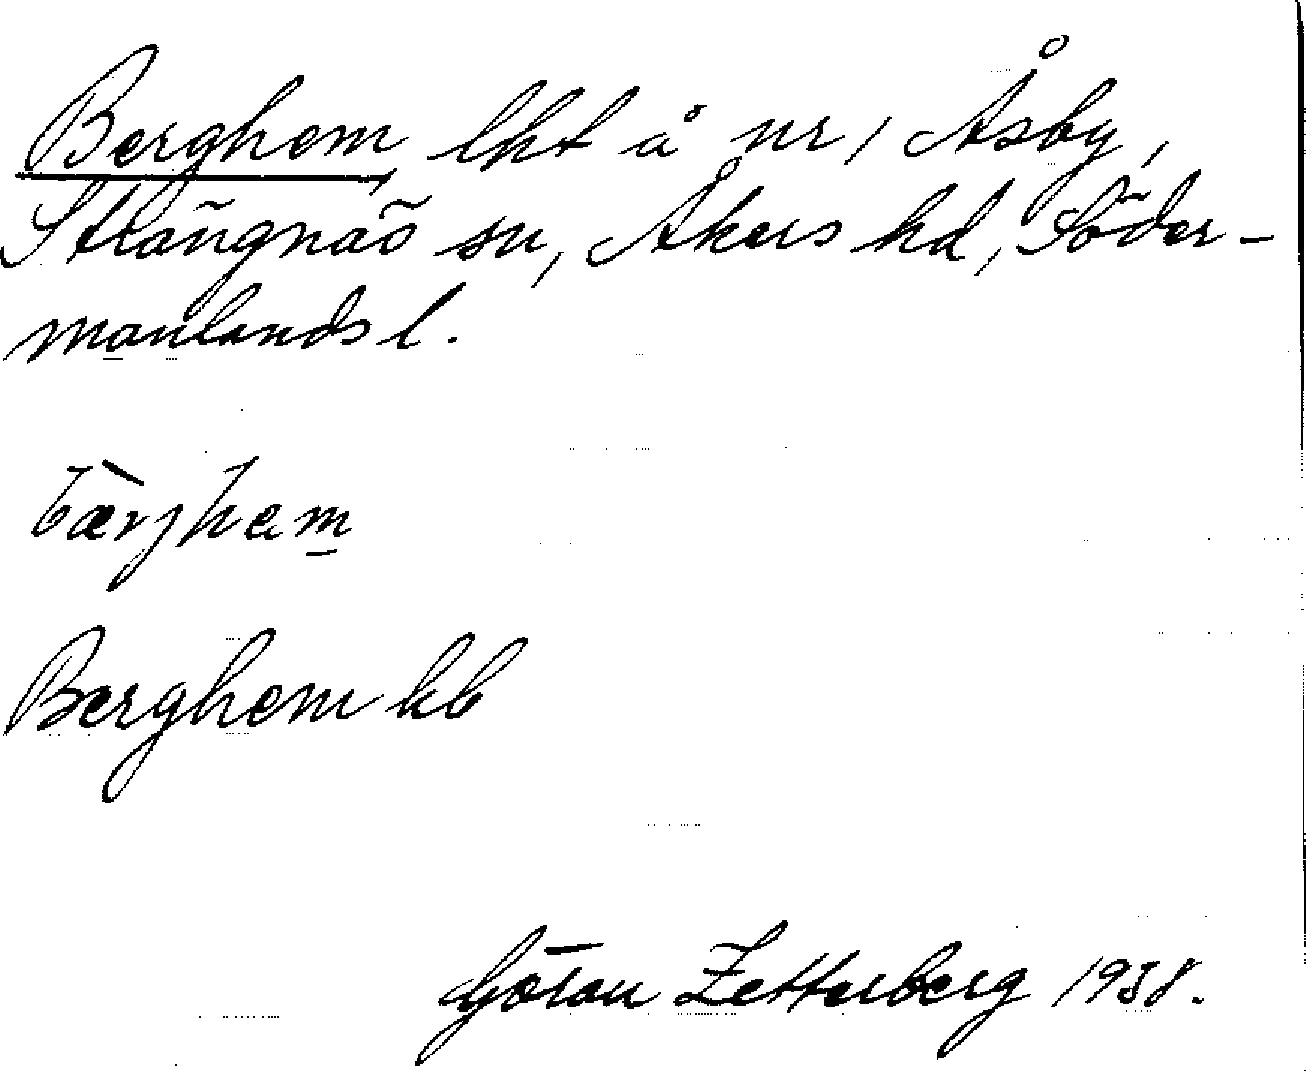 Berghem, lht å nr 1 Åsby,
Strängnäs sn, Åkers hd, Söder-
manlands l.
bær̀jhem
Berghem kb
Göran Zetterberg 1938.